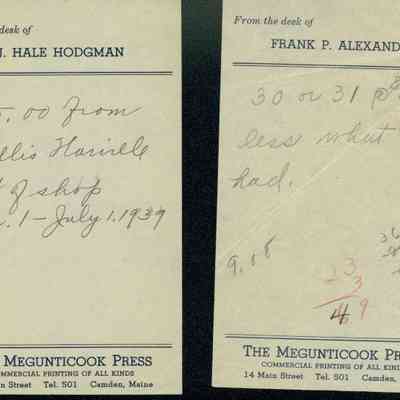 desk of
J. HALE HODGMAN
5.00 from
of shop
1 - July 1. 1939
MEGUNTICOOK PRESS
COMMERCIAL PRINTING OF ALL KINDS
Street Tel. 501 Camden, Maine
From the desk of
FRANK P. ALEXAND
30 or 31 @
less what
had.
9.08
23
3
49
THE MEGUNTICOOK PR
COMMERCIAL PRINTING OF ALL
14 Main Street Tel. 501 Camden,